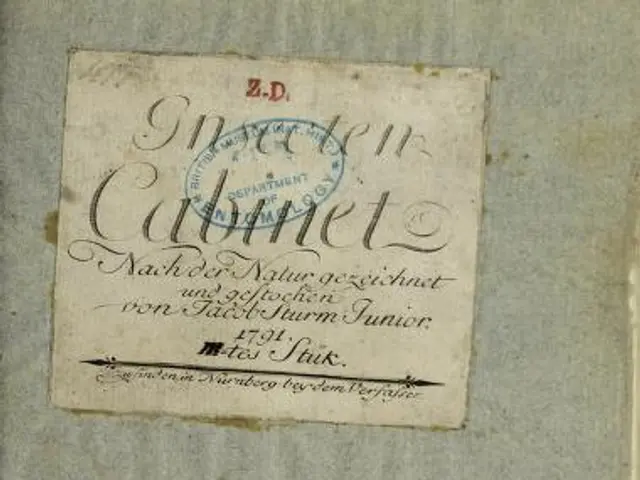 Z.D.
Insecten-
Cabinet
BRITISH MUSEUM (NAT. HIST.)
DEPARTMENT
OF
ENTOMOLOGY
Nach der Natur gezeichnet
und gestochen
von Jacob Sturm Junior.
1791.
III-tes Stük.
Zu finden in Nürnberg bey dem Verfasser